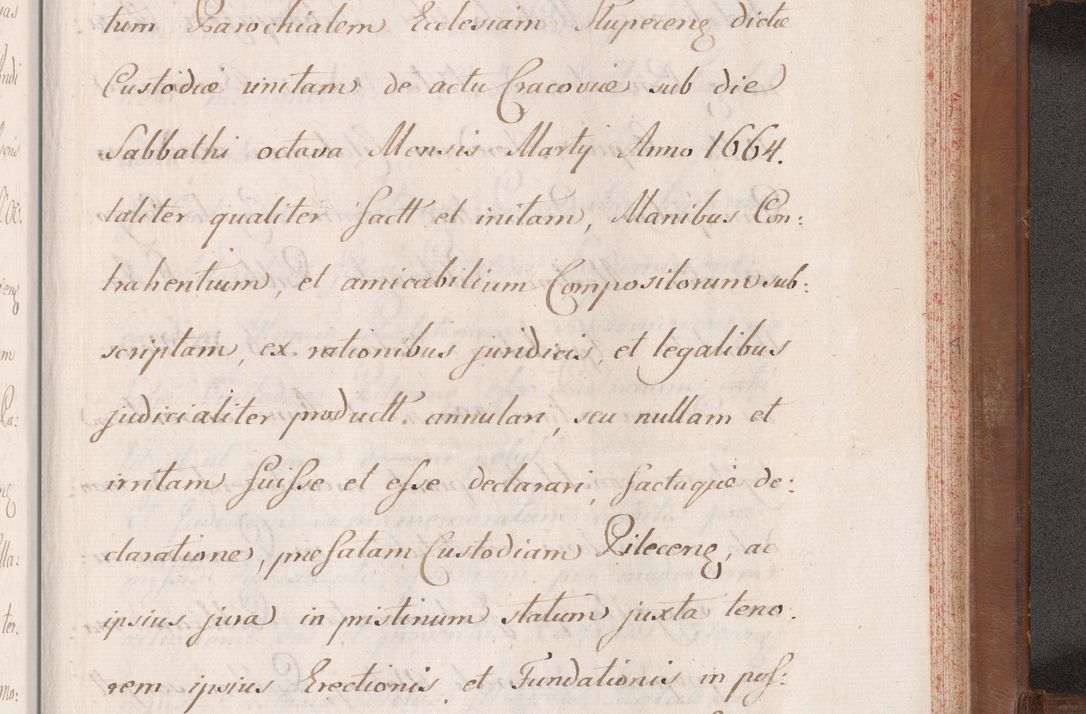 tum Parochialem Ecclesiam Slupecen̄ dictæ
Custodiæ unitam de actu Cracoviæ sub die
Sabbathi octava Mensis Martij Anno 1664.
taliter qualiter factt et initam, Manibus Con:
trahentium, et amicabilium Compositorum sub:
scriptam, ex rationibus juridicis, et legalibus
judicialiter productt. annulari, seu nullam et
irritam fuisse et esse declarari, factaque de:
claratione, præfatam Custodiam Pilecen̄, ac
ipsius jura in pristinum statum juxta teno:
rem ipsius Erectionis et Fundationis in pos: